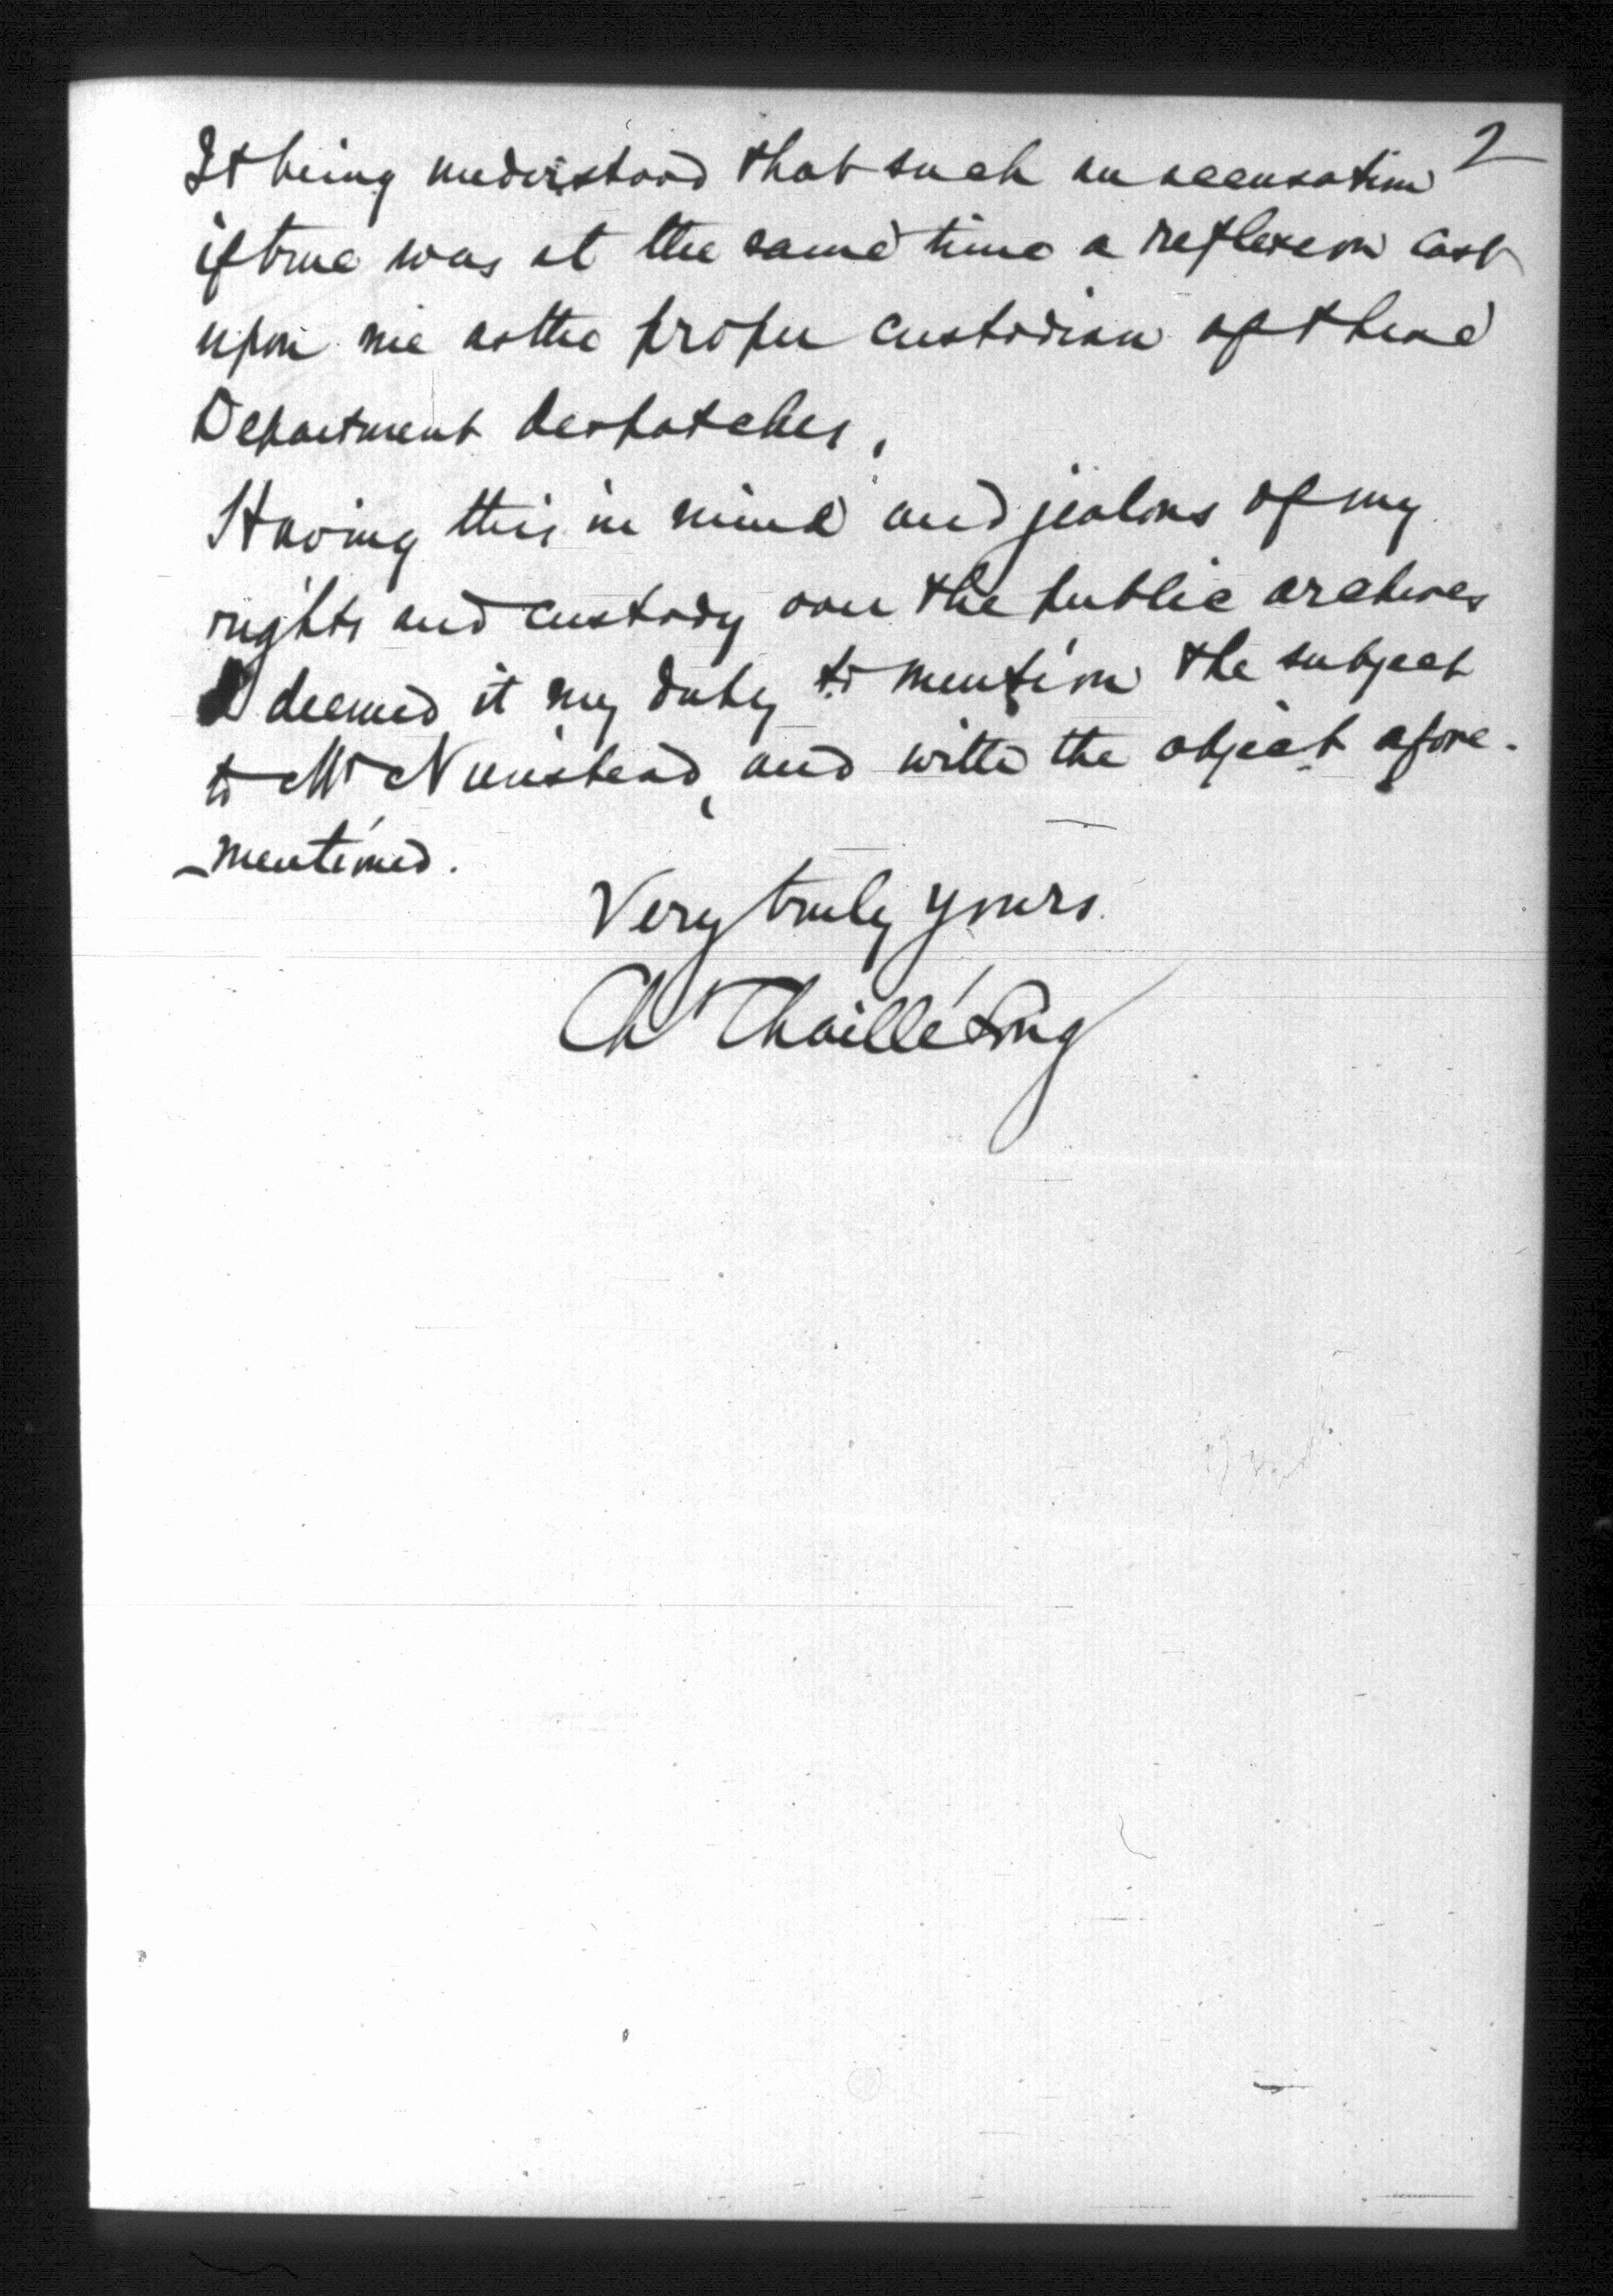 2
It being understood that such an accusation
if true was at the same time a reflexion cast
upon me as the proper custodian of these
Department despatches,
Having this in mind and jealous of my
rights and custody over the public archives
I deemed it my duty to mention the subject
to Mr Nunstead, and with the object afore-
-mentioned.
Very truly yours.
Ch Chaillé Long